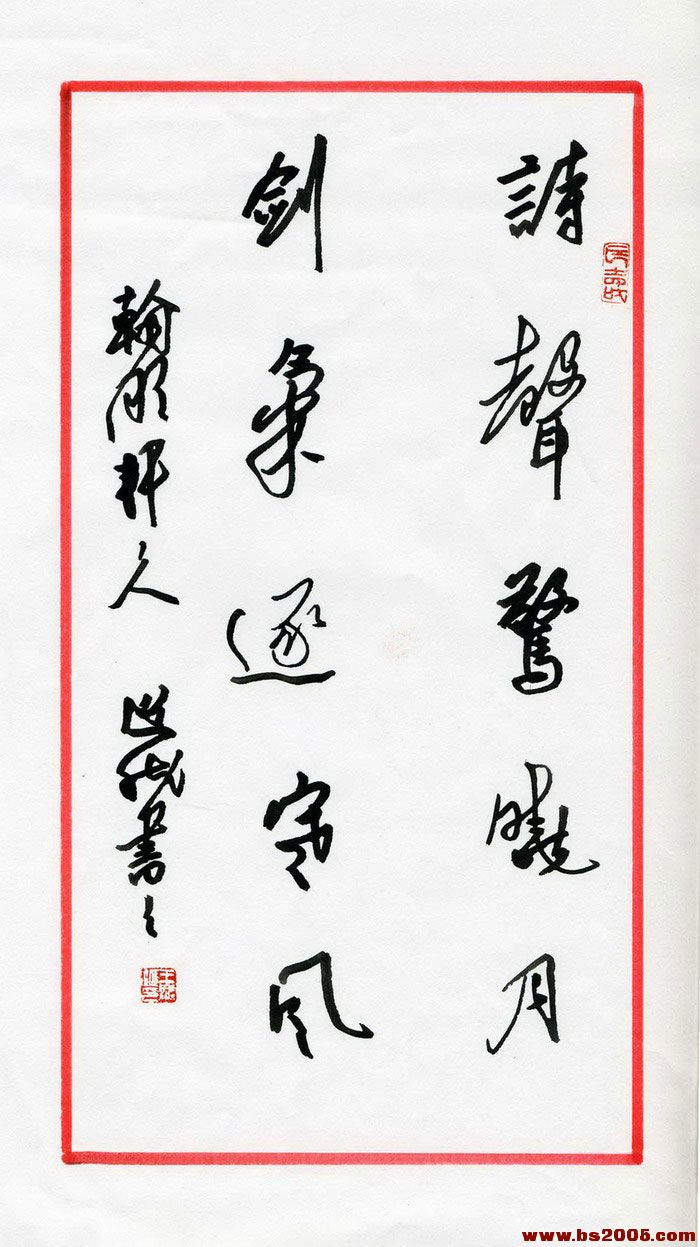 詩聲驚曉月
劍氣逐寒風
翰墨軒人 書之
www.bs2005.com